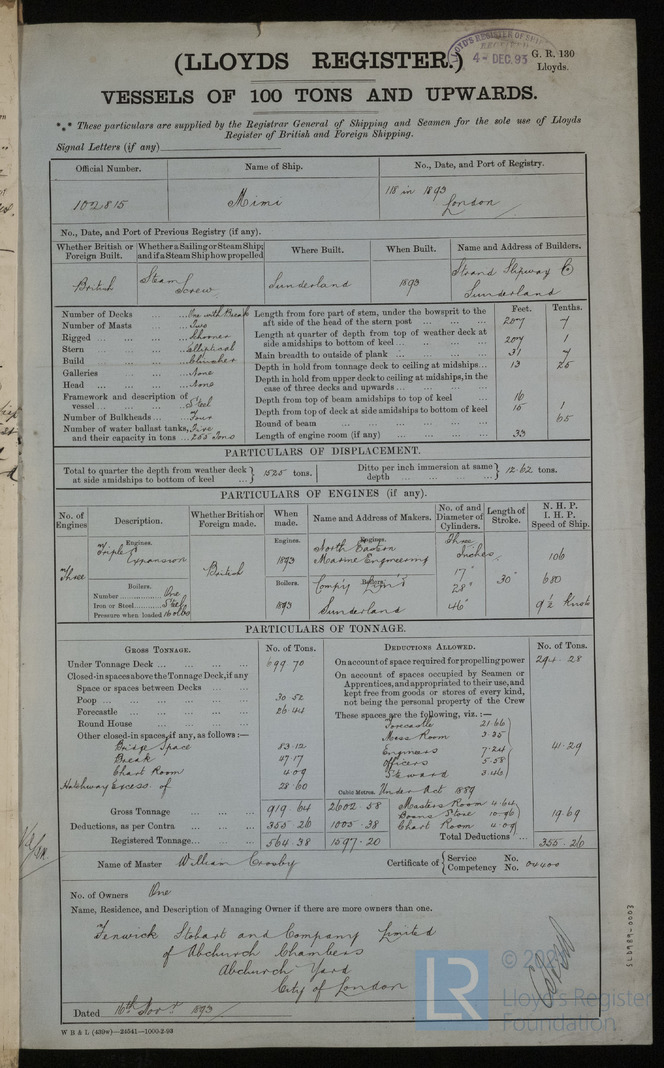 LLOYD'S REGISTER OF
4- DEC. 93
G. R. 130
Lloyds.
(LLOYDS REGISTER.)
VESSELS OF 100 TONS AND UPWARDS.
*** These particulars are supplied by the Registrar General of Shipping and Seamen for the sole use of Lloyds
Register of British and Foreign Shipping.
Signal Letters (if any)
Official Number. Name of Ship. No., Date, and Port of Registry.
102815 Mimi 118 in 1893 London
No., Date, and Port of Previous Registry (if any).
Whether British or Foreign Built. Whether a Sailing or Steam Ship; and if a Steam Ship how propelled Where Built. When Built. Name and Address of Builders.
British Steam Screw Sunderland 1893 Strand Slipway Co Sunderland
Feet. Tenths.
Number of Decks ... One with Break
Number of Masts ... Two
Rigged ... Schooner
Stern ... Elliptical
Build ... Clincher
Galleries ... None
Head ... None
Framework and description of vessel ... Steel
Number of Bulkheads ... Four
Number of water ballast tanks, and their capacity in tons ... Five 255 Tons
Length from fore part of stem, under the bowsprit to the aft side of the head of the stern post ... 207 4
Length at quarter of depth from top of weather deck at side amidships to bottom of keel ... 207 1
Main breadth to outside of plank ... 31 4
Depth in hold from tonnage deck to ceiling at midships ... 13 25
Depth in hold from upper deck to ceiling at midships, in the case of three decks and upwards ...
Depth from top of beam amidships to top of keel ... 16
Depth from top of deck at side amidships to bottom of keel 15 1
Round of beam ... 65
Length of engine room (if any) ... 33
PARTICULARS OF DISPLACEMENT.
Total to quarter the depth from weather deck at side amidships to bottom of keel ... 1525 tons. Ditto per inch immersion at same depth ... 12.62 tons.
PARTICULARS OF ENGINES (if any).
No. of Engines Description. Whether British or Foreign made. When made. Name and Address of Makers. No. of and Diameter of Cylinders. Length of Stroke. N. H. P. I. H. P. Speed of Ship.
Engines. Engines. Engines.
Three Triple Expansion British 1893 North Eastern Marine Engineering Three Inches 106
17" 28" 46" 30" 680
Boilers. Boilers. Boilers.
Number ... One
Iron or Steel ... Steel
Pressure when loaded 160 lbs
1893 Comp'y Lim'd Sunderland 9½ Knots
PARTICULARS OF TONNAGE.
GROSS TONNAGE. No. of Tons. DEDUCTIONS ALLOWED. No. of Tons.
Under Tonnage Deck ... 699.70
Closed-in spaces above the Tonnage Deck, if any
Space or spaces between Decks ...
Poop ... 30.52
Forecastle ... 26.44
Round House ...
Other closed-in spaces, if any, as follows :—
Bridge Space 83.12
Break 47.17
Chart Room 4.09
Hatchway Excess of 28.60
Gross Tonnage ... 919.64 2602.58
Deductions, as per Contra ... 355.26 1005.38
Registered Tonnage ... 564.38 1597.20
On account of space required for propelling power 294.28
On account of spaces occupied by Seamen or Apprentices, and appropriated to their use, and kept free from goods or stores of every kind, not being the personal property of the Crew
These spaces are the following, viz. :—
Forecastle 21.66
Mess Room 3.35
Engineers 7.24
Officers 5.58
Steward 3.46
41.29
Cubic Metres. Under Act 1889
Masters Room 4.64
Boats'ns Store 10.96
Chart Room 4.09
19.69
Total Deductions ... 355.26
Name of Master William Crosby Certificate of Service No. Competency No. 04400
No. of Owners One
Name, Residence, and Description of Managing Owner if there are more owners than one.
Fenwick Stobart and Company Limited
of Abchurch Chambers
Abchurch Yard
City of London
Dated 16th Nov'r 1893
W B & L (439w)—24541—1000-2-93
LLD989-0003
LR
Lloyd's Register
Foundation